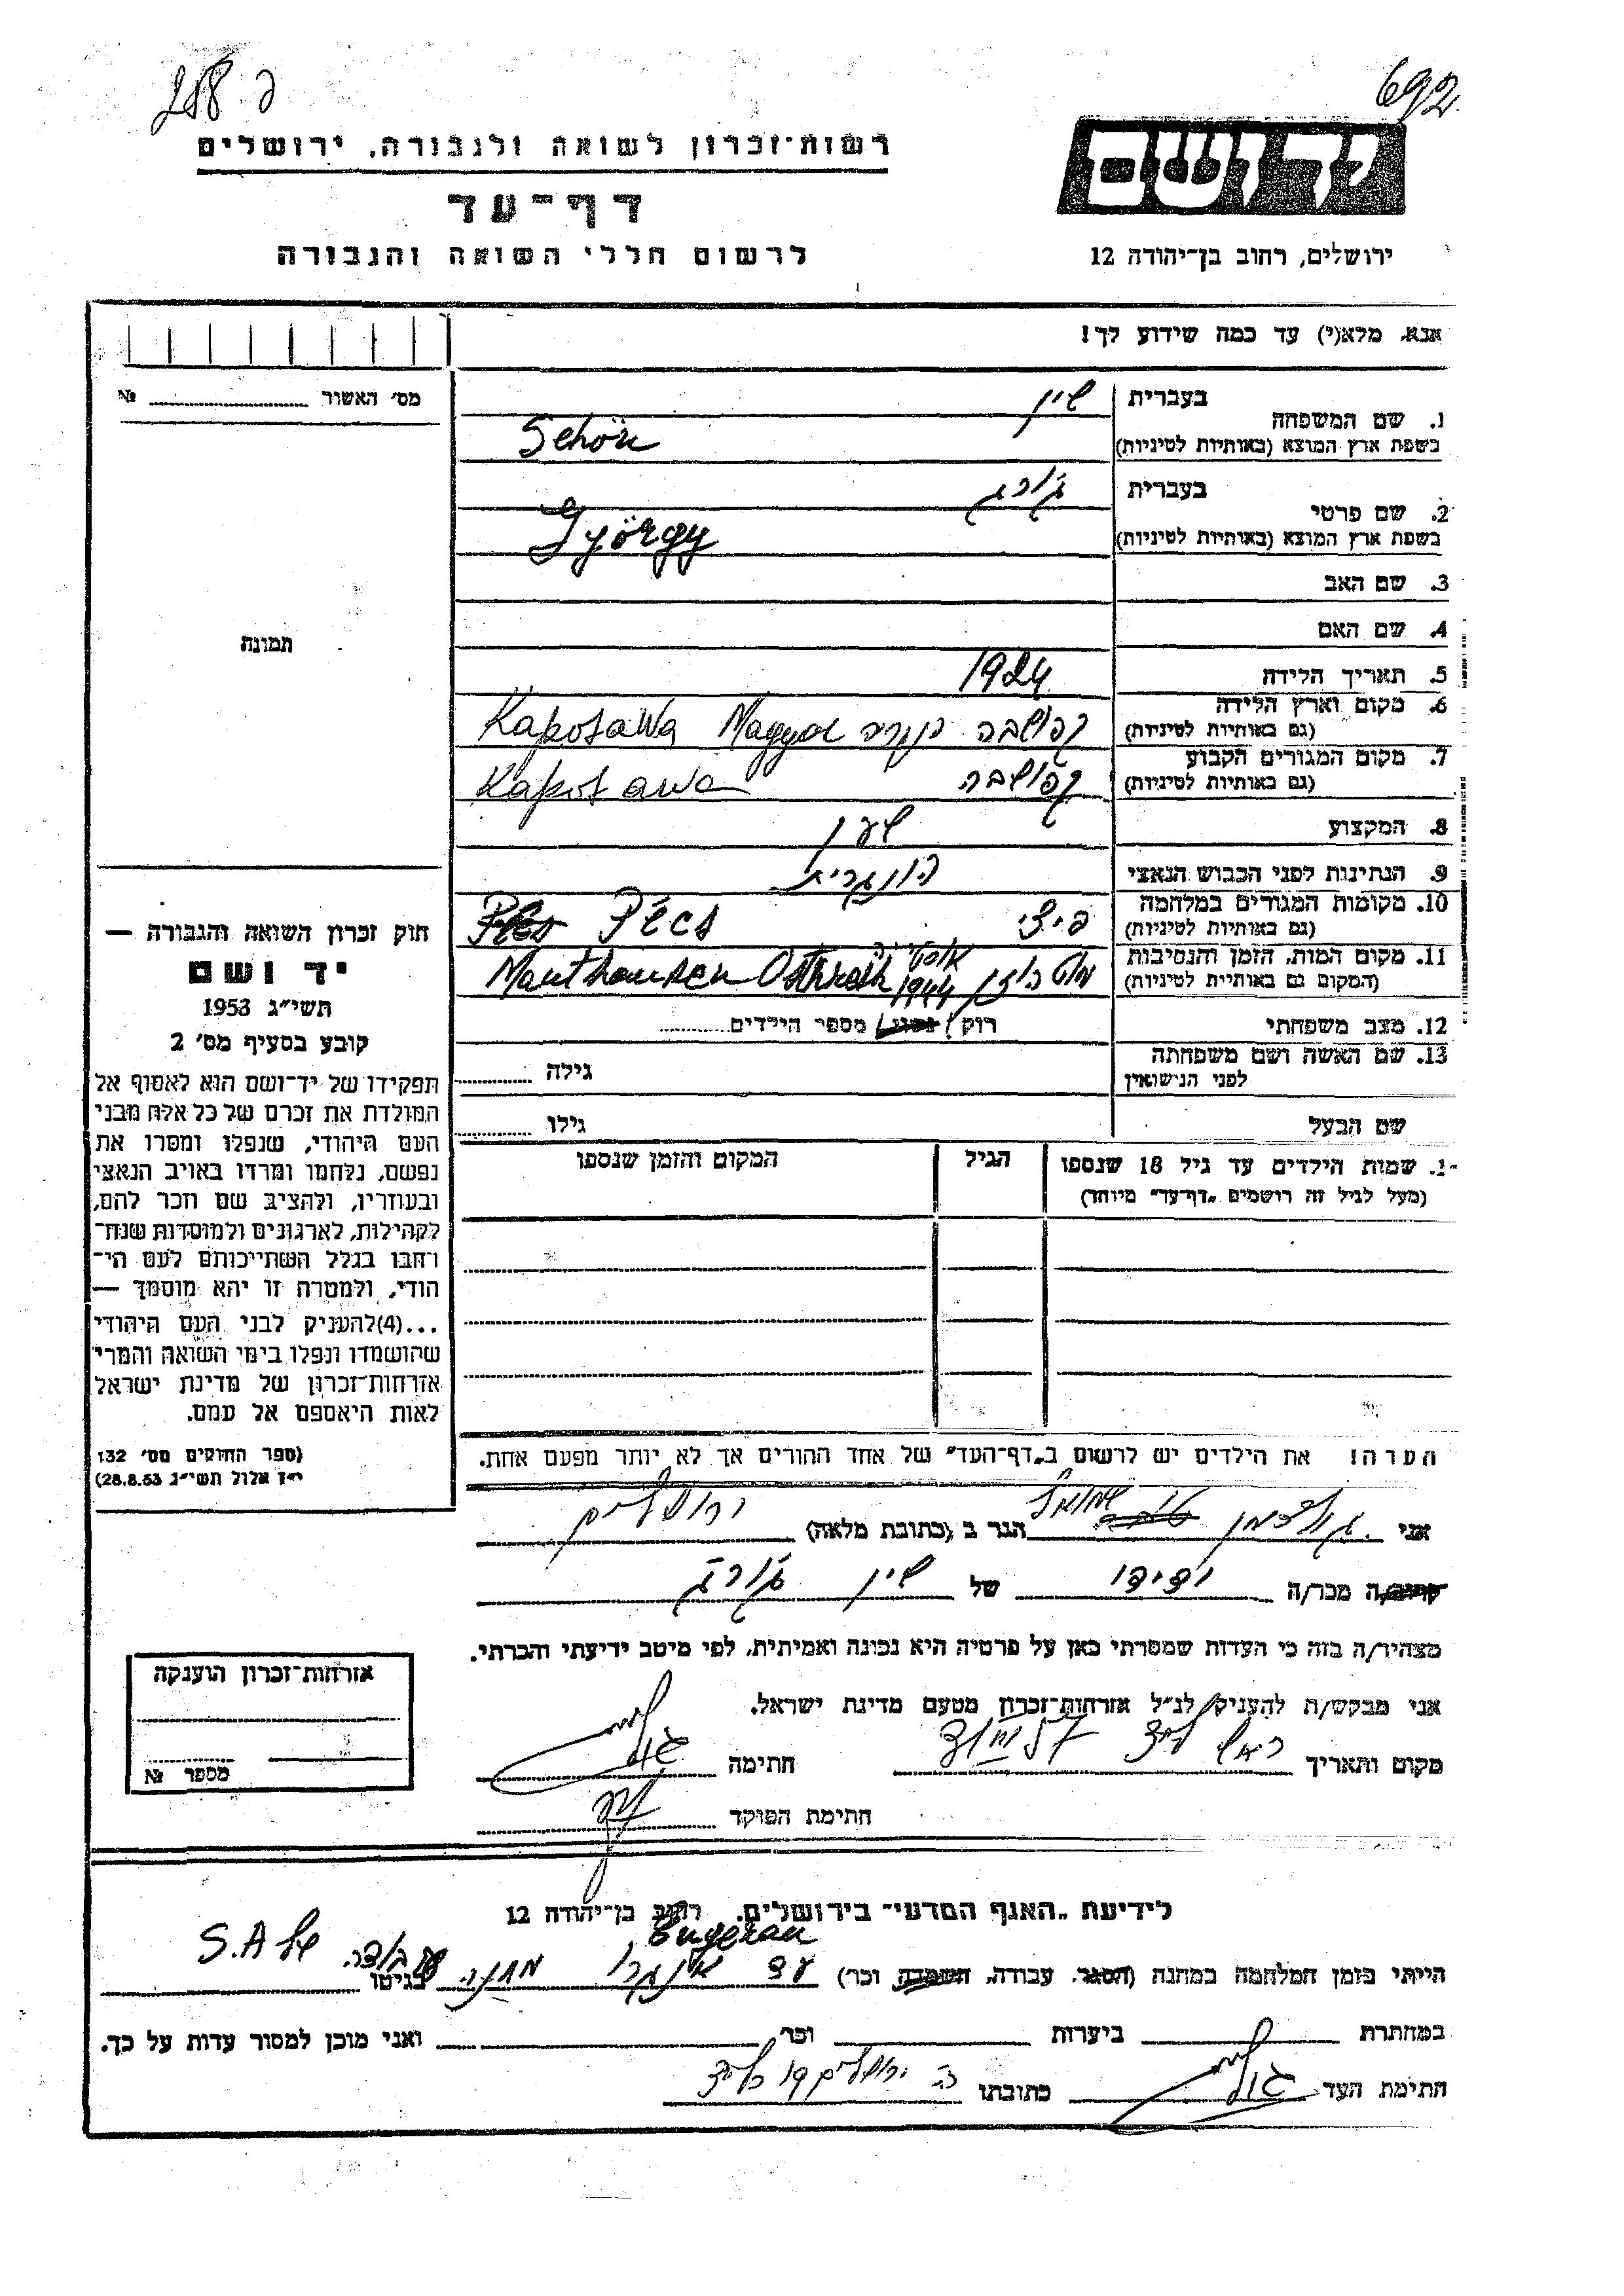 692
רשות-זכרון לשואה ולגבורה, ירושלים
ידושם
דף-עד
לרשום חללי השואה והגבורה
ירושלים, רחוב בן-יהודה 12
אנא, מלא(י) עד כמה שידוע לך!
מס' האשור № 
1. שם המשפחה
בעברית שין
בשפת ארץ המוצא (באותיות לטיניות) Schön
2. שם פרטי
בעברית ג'ורג
בשפת ארץ המוצא (באותיות לטיניות) György
3. שם האב
4. שם האם
תמונה
5. תאריך הלידה 1924
6. מקום וארץ הלידה
(גם באותיות לטיניות) קפושבה הונגריה Kaposawa Magyar
7. מקום המגורים הקבוע
(גם באותיות לטיניות) קפושבה Kaposawa
8. המקצוע שען
9. הנתינות לפני הכבוש הנאצי הונגרית
10. מקומות המגורים במלחמה
(גם באותיות לטיניות) פיצ'י Pécs
11. מקום המות, הזמן והנסיבות
(המקום גם באותיית לטיניות) מוטהוזן אוסטריה 1944 Mauthausen Osthreih
12. מצב משפחתי רוק / נשוי / מספר הילדים
13. שם האשה ושם משפחתה
לפני הנישואין גילה
שם הבעל גילו
1. שמות הילדים עד גיל 18 שנספו
(מעל לגיל זה רושמים "דף-עד" מיוחד)
הגיל
המקום והזמן שנספו
הערה! את הילדים יש לרשום ב"דף-העד" של אחד ההורים אך לא יותר מפעם אחת.
חוק זכרון השואה והגבורה —
יד ושם
תשי"ג 1953
קובע בסעיף מס' 2
תפקידו של יד-ושם הוא לאסוף אל
המולדת את זכרם של כל אלה מבני
העם היהודי, שנפלו ומסרו את
נפשם, נלחמו ומרדו באויב הנאצי
ובעוזריו, ולהציב שם וזכר להם,
לקהילות, לארגונים ולמוסדות שנח-
רחבו בגלל השתייכותם לעם הי-
הודי, ולמטרה זו יהא מוסמך —
...(4)להעניק לבני העם היהודי
שהושמדו ונפלו בימי השואה והמרי
אזרחות-זכרון של מדינת ישראל
לאות היאספם אל עמם.
(ספר החוקים מס' 132
י"ז אלול תשי"ג 28.8.53)
אני גולדמן שמואל הגר ב (כתובת מלאה) ירושלים
קרוב/ה מכר/ה ידידו של שין ג'ורג
מצהיר/ה בזה כי העדות שמסרתי כאן על פרטיה היא נכונה ואמיתית, לפי מיטב ידיעתי והכרתי.
אני מבקש/ת להעניק לנ"ל אזרחות-זכרון מטעם מדינת ישראל.
מקום ותאריך חתימה
חתימת הפוקד
אזרחות-זכרון הוענקה
מספר №
לידיעת "האגף המדעי" בירושלים. רחוב בן-יהודה 12
הייתי בזמן המלחמה במחנה (הסגר, עבודה, השמדה וכר) מחנה עבודה בגיטו של S.A
במחתרת ביערות וכר ואני מוכן למסור עדות על כך.
חתימת העד כתובתו